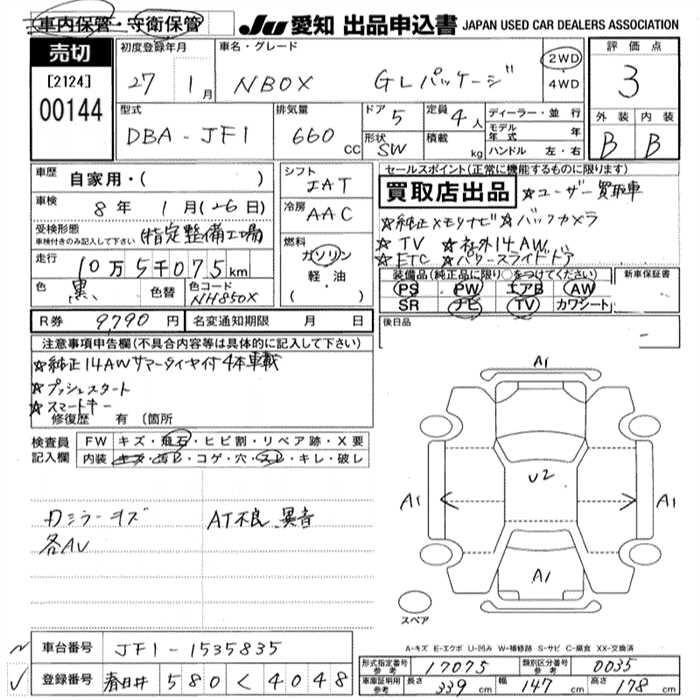 車内保管・守衛保管
JU 愛知 出品申込書 JAPAN USED CAR DEALERS ASSOCIATION
売切
[2124]
00144
初度登録年月
27 1月
車名・グレード
NBOX GLパッケージ
2WD
・
4WD
評価点
3
型式
DBA-JF1
排気量
660cc
ドア
5
定員
4人
形状
SW
積載
kg
ディーラー・並行
モデル年式 年
ハンドル 左・右
外装 内装
B B
車歴 自家用・( )
車検 8年 1月(26日)
受検形態 (指定整備工場)
車検付きのみ記入して下さい
走行 10万5千075km
色 黒 色替 色コード NH850X
シフト
IAT
冷房
AAC
燃料
ガソリン
軽・油
( )
セールスポイント(正常に機能するものに限ります)
買取店出品 ☆ユーザー買取車
☆純正メモリナビ☆バックカメラ
☆TV ☆社外14AW
☆ETC ☆パワースライドドア
装備品(純正品に限り○をつけてください) 新車保証書
PS PW エアB AW
SR ナビ TV カワシート
R券 9,790円 名変通知期限 月 日
後日品
注意事項申告欄(不具合内容等は具体的に記入して下さい)
☆純正14AWサマータイヤ付4本車載
☆プッシュスタート
☆スマートキー
修復歴 有 (箇所
検査員記入欄
FW キズ・飛石・ヒビ割・リペア跡・X要
内装 キズ・汚レ・コゲ・穴・スレ・キレ・破レ
カミラーキズ AT不良 異音
各AU
A1
A1 U2 A1
A1
スペア
A-キズ E-エクボ U-凹み W-補修跡 S-サビ C-腐食 XX-交換済
車台番号 JF1-1535835
登録番号 春日井 580 く 4048
形式指定番号 参考 17075 類別区分番号 参考 0035
車庫証明用 参考 長さ 339cm 幅 147cm 高さ 178cm